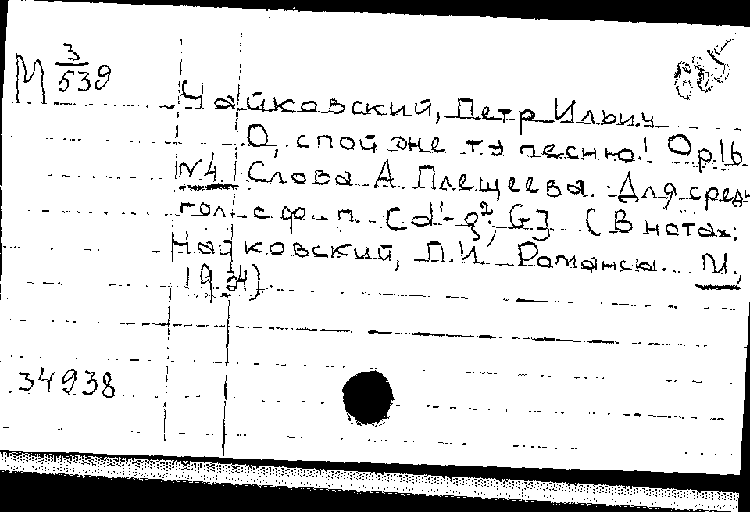 М 3/539
Чайковский, Петр Ильич
О, спой же ту песню! Op.16
N4. Слова А. Плещеева. Для средн
гол. с ф-п. [d¹-g²; G] (В нотах:
Чайковский, П.И. Романсы. М.,
34938